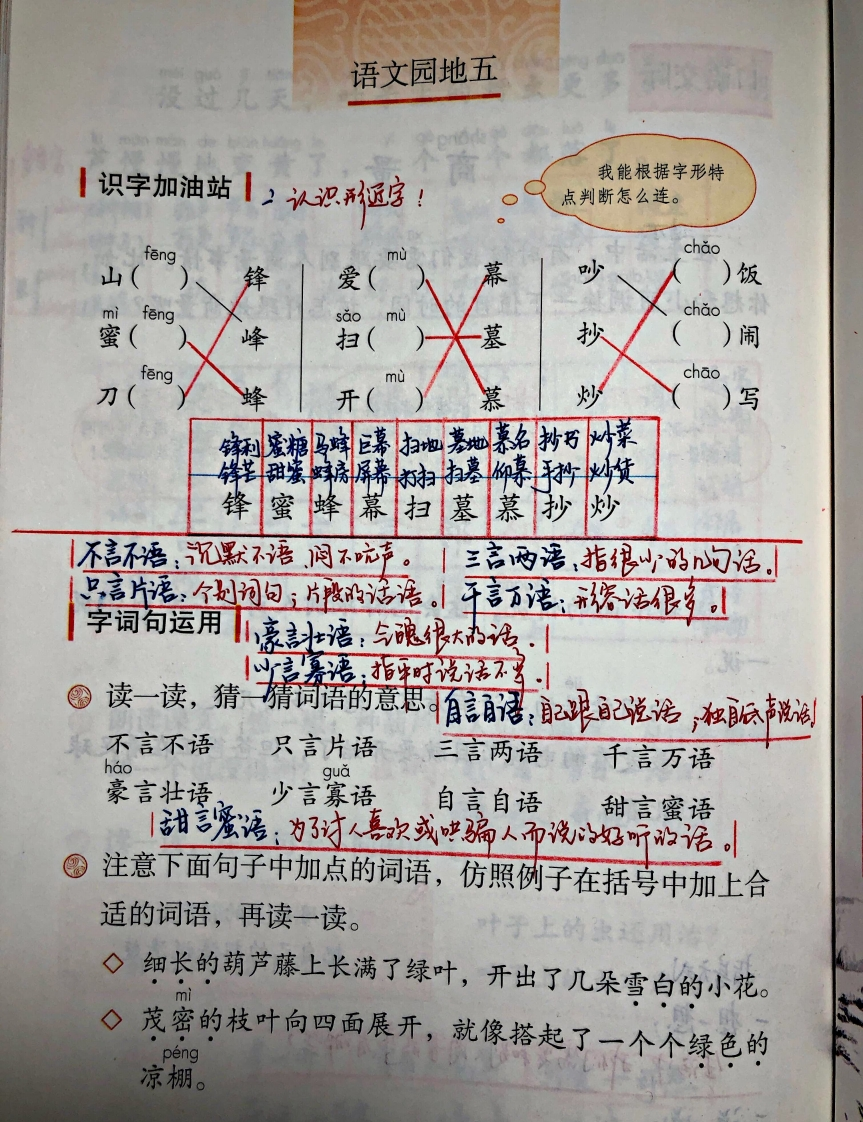 语文园地五
识字加油站 2 认识形近字！
我能根据字形特
点判断怎么连。
fēng mù chǎo
山( ) 锋 爱( ) 幕 吵 ( )饭
mì fēng sǎo mù chǎo
蜜( ) 峰 扫( ) 墓 抄 ( )闹
fēng mù chāo
刀( ) 蜂 开( ) 慕 炒 ( )写
锋利 蜜糖 马蜂 巨幕 扫地 墓地 慕名 抄书 炒菜
锋芒 甜蜜 蜂房 屏幕 打扫 扫墓 仰慕 手抄 炒货
锋 蜜 蜂 幕 扫 墓 慕 抄 炒
不言不语：沉默不语、闷不吭声。 三言两语：指很少的几句话。
只言片语：个别词句；片段的话语。 千言万语：形容话很多。
字词句运用
豪言壮语：气魄很大的话。
少言寡语：指平时说话不多。
读一读，猜一猜词语的意思。
自言自语：自己跟自己说话；独自低声说话
不言不语 只言片语 三言两语 千言万语
háo guǎ
豪言壮语 少言寡语 自言自语 甜言蜜语
甜言蜜语：为了讨人喜欢或哄骗人而说的好听的话。
注意下面句子中加点的词语，仿照例子在括号中加上合
适的词语，再读一读。
◇ 细长的葫芦藤上长满了绿叶，开出了几朵雪白的小花。
mì
◇ 茂密的枝叶向四面展开，就像搭起了一个个绿色的
péng
凉棚。